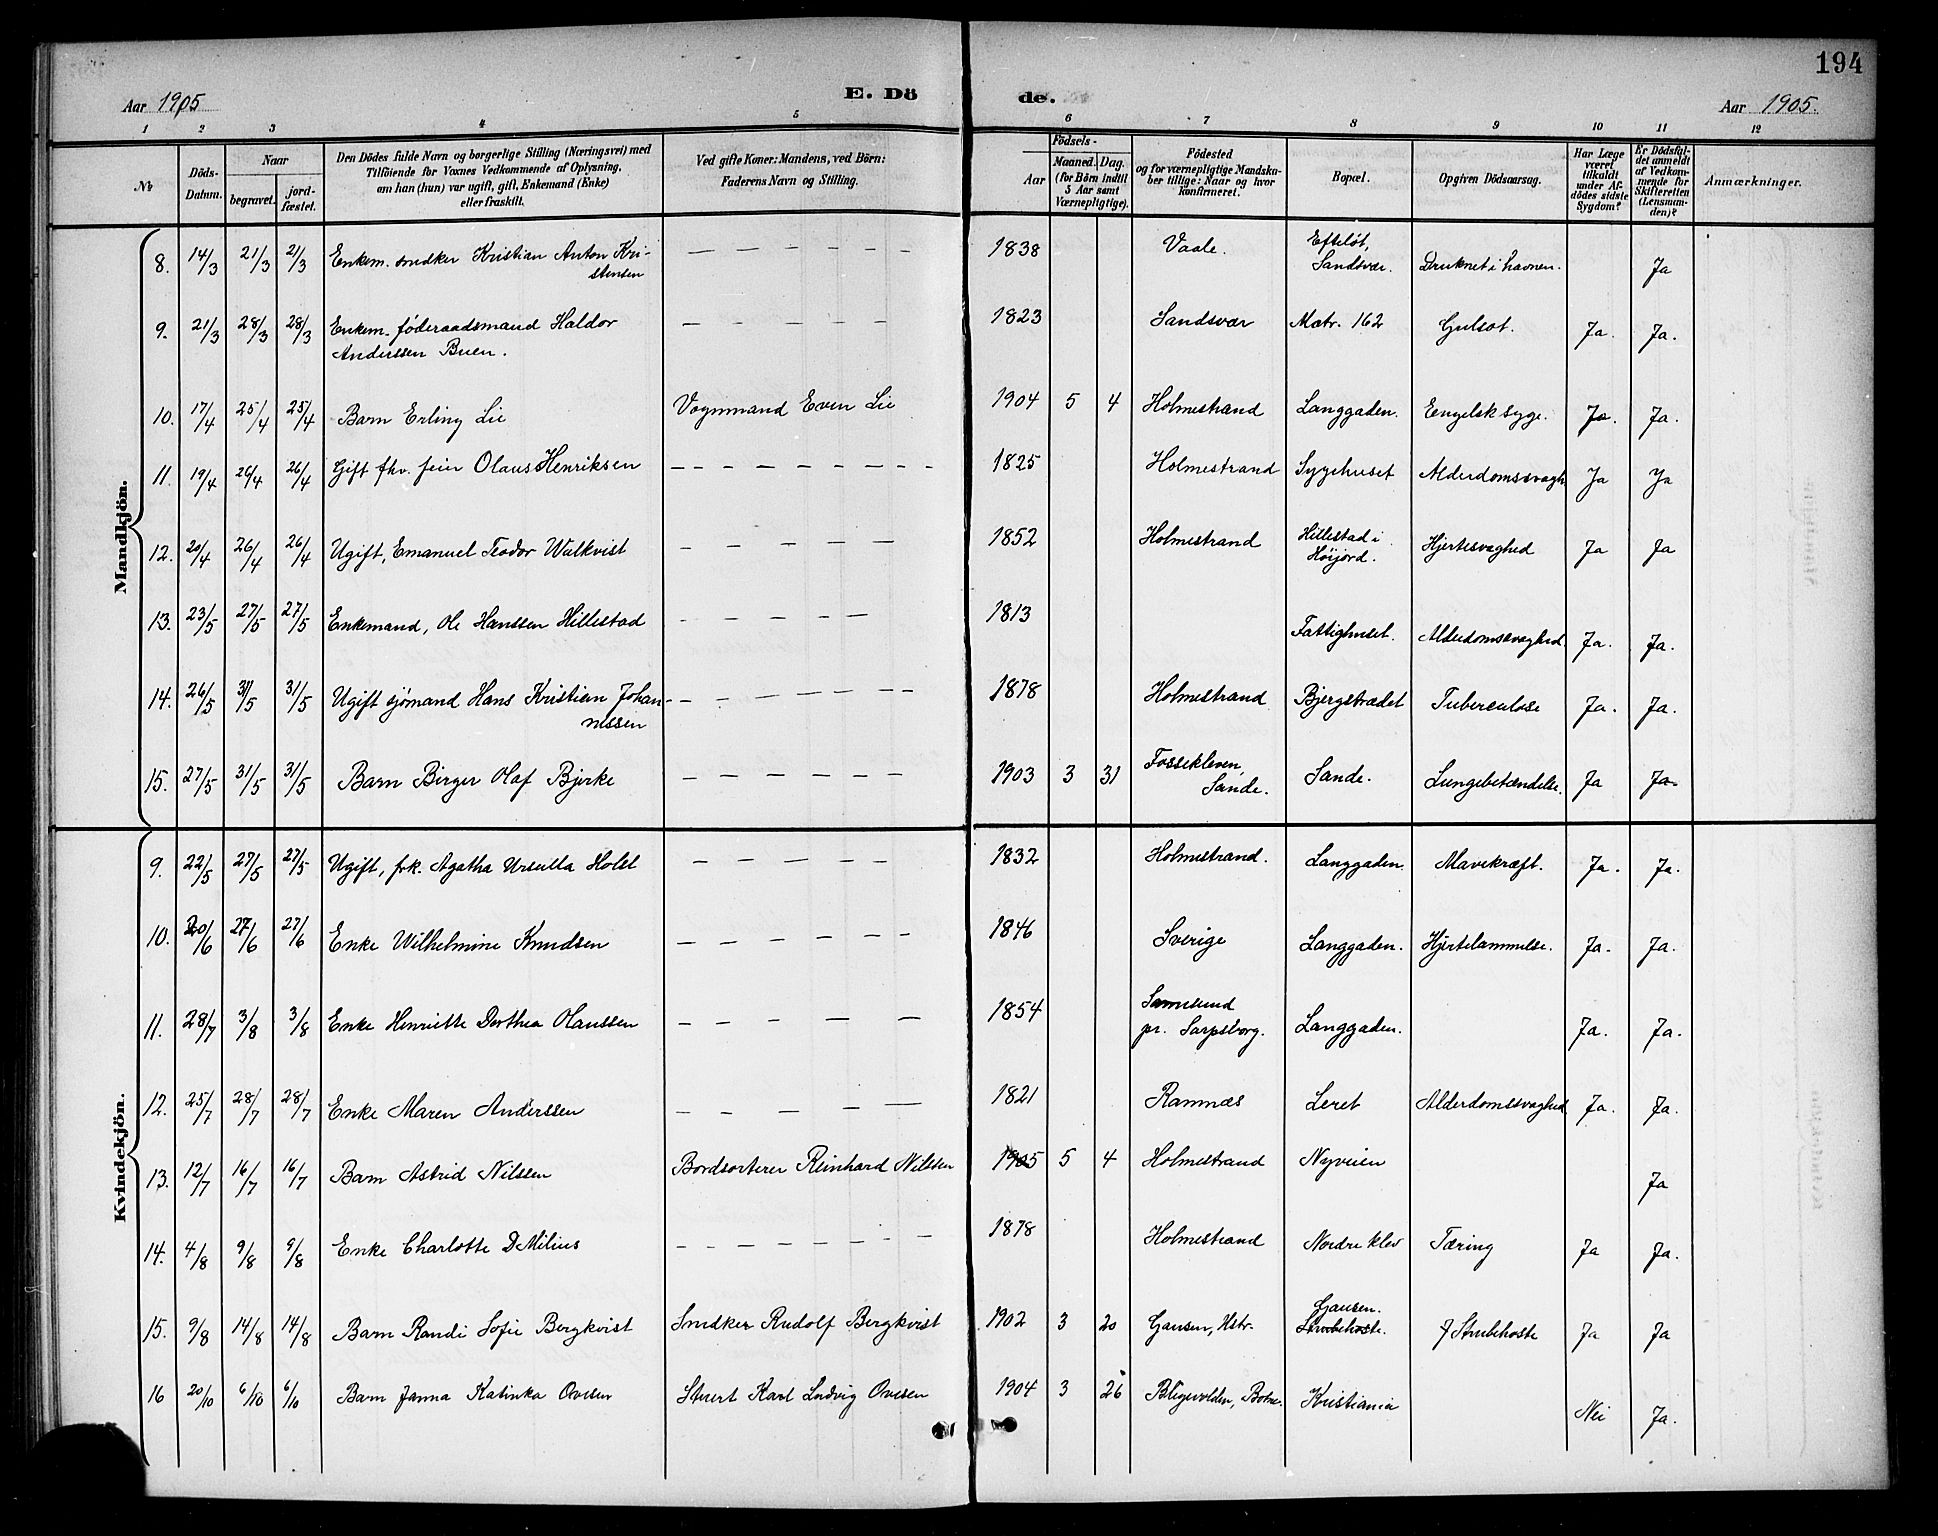 194
Aar 1905
E. Dö
de.
Aar 1905.
1 2 3 4 5 6 7 8 9 10 11 12
No
Döds-Datum.
Naar
begravet.
jord-fæstet.
Den Dödes fulde Navn og borgerlige Stilling (Næringsvei) med
Tilföiende for Voxnes Vedkommende af Oplysning,
om han (hun) var ugift, gift, Enkemand (Enke)
eller fraskilt.
Ved gifte Koner: Mandens, ved Börn:
Faderens Navn og Stilling.
Födsels-
Aar
Maaned. Dag.
(for Börn indtil
5 Aar samt
Værnepligtige).
Födested
og for værnepligtige Mandska-
ber tillige: Naar og hvor
konfirmeret.
Bopæl.
Opgiven Dödsaarsag.
Har Læge
været
tilkaldt
under Af-
dödes sidste
Sygdom?
Er Dödsfal-
det anmeldt
af Vedkom-
mende for
Skifteretten
(Lensman-
den)?
Anmærkninger.
Mandkjön.
8. 14/3 21/3 21/3 Enkem. snedker Kristian Anton Kri-
stensen — — — — — — 1838 Vaale. Efteløt,
Sandsvær. Druknet i havnen. Ja
9. 21/3 28/3 28/3 Enkem. føderaadsmand Haldor
Anderssen Buen. — — — — — 1823 Sandsvær Matr. 162 Gulsot. Ja. Ja.
10. 17/4 25/4 25/4 Barn Erling Lie Vognmand Even Lie 1904 5 4 Holmestrand Langgaden. Eengelsk syge. Ja. Ja.
11. 19/4 26/4 26/4 Gift fhv. Olaus Henriksen — — — — — — — — 1825 Holmestrand Sygehuset Alderdomssvagh Ja Ja
12. 20/4 26/4 26/4 Ugift, Emanuel Teodor Walkvist — — — — — 1852 Holmestrand Hillestad i
Höijord. Hjertesvaghed Ja Ja
13. 23/5 27/5 27/5 Enkemand, Ole Hanssen Hillestad — — — — — 1813 Fattighuset. Alderdomssvaghed. Ja. Ja.
14. 26/5 31/5 31/5 Ugift sjømand Hans Kristian Johan-
nessen — — — — — — 1878 Holmestrand Bjergstrædet Tuberculose Ja. Ja.
15. 27/5 31/5 31/5 Barn Birger Olaf Bjerke — — — — — — 1903 3 31 Fossekleven,
Sande. Sande. Lungebetændelse. Ja Ja.
Kvindekjön.
9. 22/5 27/5 27/5 Ugift, frk. Agatha Ursulla Holst — — — — — 1832 Holmestrand. Langgaden. Mavekræft. Ja. Ja.
10. 20/6 27/6 27/6 Enke Wilhelmine Knudsen — — — — — — 1846 Sverige Langgaden. Hjertelammelse. Ja. Ja.
11. 28/7 3/8 3/8 Enke Henriette Dorthea Olaussen — — — — — 1854 Sannesund
pr. Sarpsborg. Langgaden. Ja. Ja.
12. 25/7 28/7 28/7 Enke Maren Anderssen — — — — — 1821 Ramnæs Leret Alderdomssvaghed Ja. Ja.
13. 12/7 16/7 16/7 Barn Astrid Nilssen Bordsorterer Reinhard Nilssen 1905 5 4 Holmestrand Nyveien Ja
14. 4/8 9/8 9/8 Enke Charlotte D Milius — — — — — — — 1878 Holmestrand Nordre klev Tæring Ja Ja.
15. 9/8 14/8 14/8 Barn Randi Sofie Bergkvist Snedker Rudolf Bergkvist 1902 3 20 Gausen, Hstr. Gausen.
Strubehoste. Strubehoste Ja Ja
16 20/10 6/10 6/10 Barn Janna Katinka Ovesen Stuert Karl Ludvig Ovesen 1904 3 26 Kristiania Nei Ja.